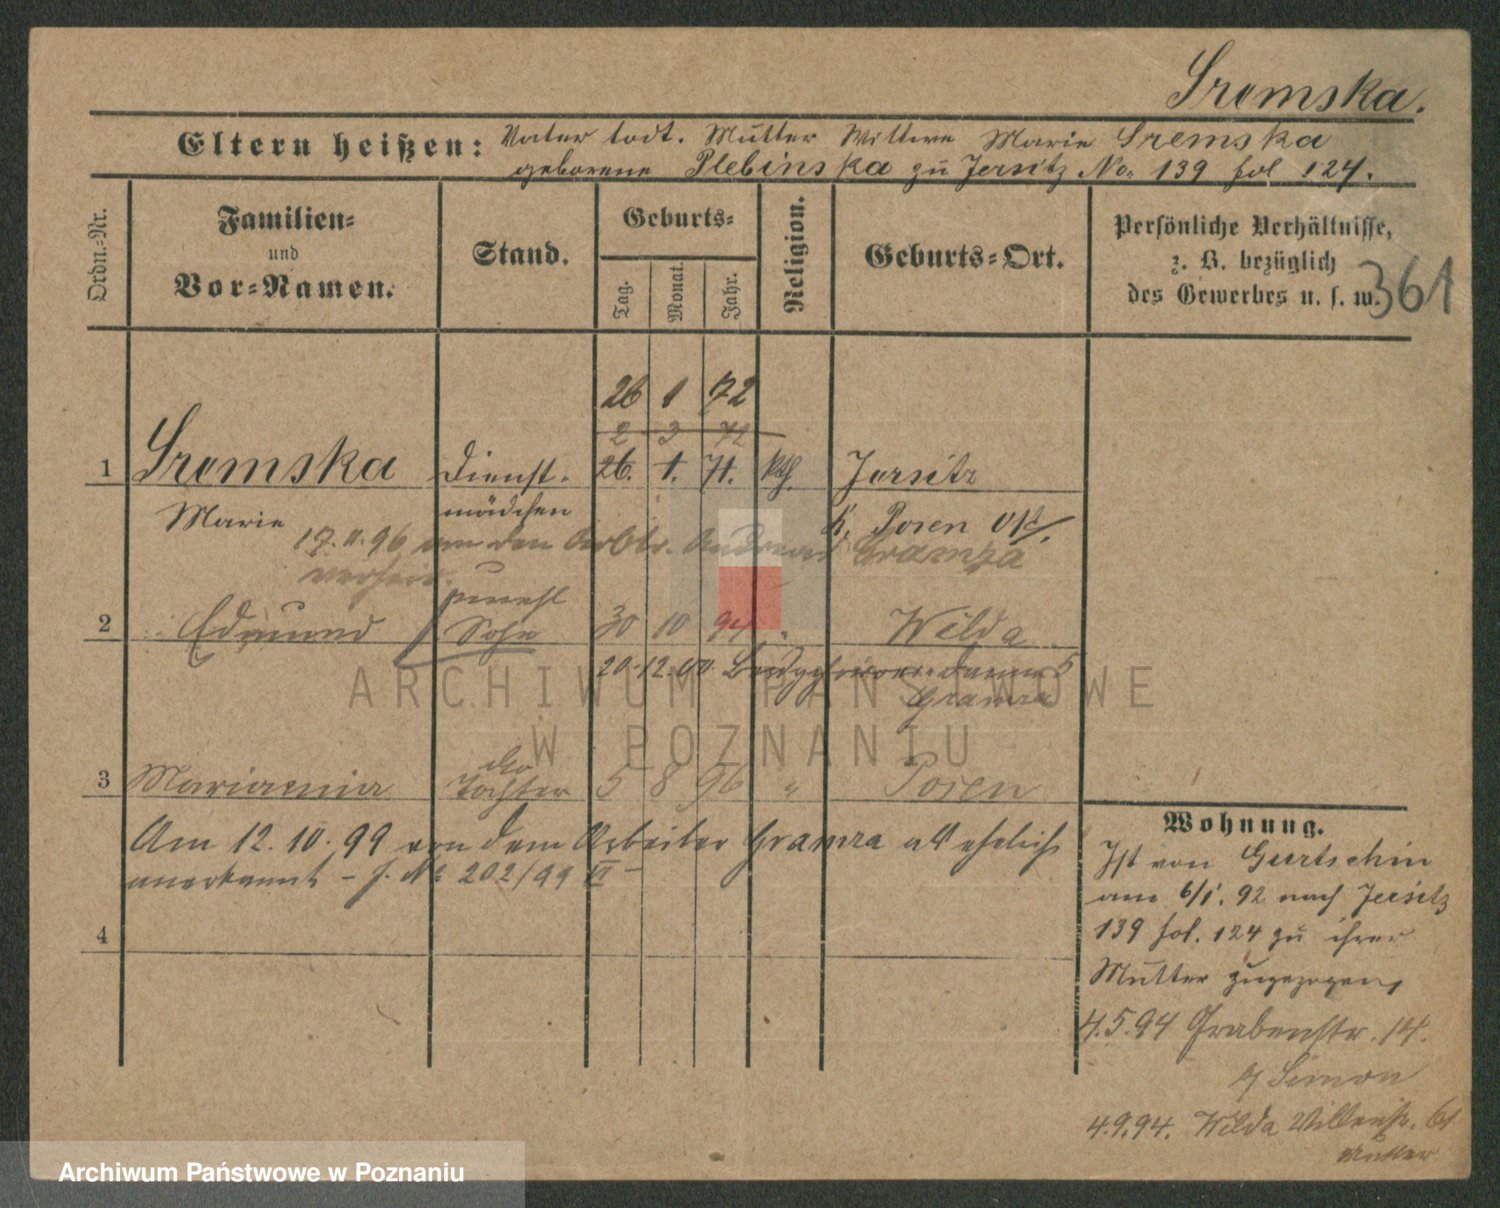 Sremska.
Eltern heißen: Vater todt. Mutter Wittwe Marie Sremska
geborene Plebinska zu Jersitz No. 139 fol 124.
Ordn.-Nr.
Familien-
und
Vor-Namen.
Stand.
Geburts-
Tag.
Monat.
Jahr.
Religion.
Geburts-Ort.
Persönliche Verhältnisse,
z. B. bezüglich
des Gewerbes u. s. w.
361
26 1 72
2 3 72
1 Sremska Dienst- 26. 1. 71. kth. Jersitz
Marie mädchen K. Posen Ost
17. 11. 96 an den Arbtr. Andreas Gramza
verheir.
unehl
2 Edmund Sohn 30 10 94 " Wilda
20.12.00
Gramza
3 Marianna Tochter 5 8 96 " Posen
Am 12. 10. 99 von dem Arbeiter Gramza als ehelich
anerkannt – J. No 202/99 II –
4
Wohnung.
Ist von Gurtschin
am 6/1. 92 nach Jersitz
139 fol. 124 zu ihrer
Mutter zugezogen,
4.5.94 Grabenstr. 14.
b/ Simon
4.9.94. Wilda 61
Mutter
ARCHIWUM PAŃSTWOWE
W POZNANIU
Archiwum Państwowe w Poznaniu